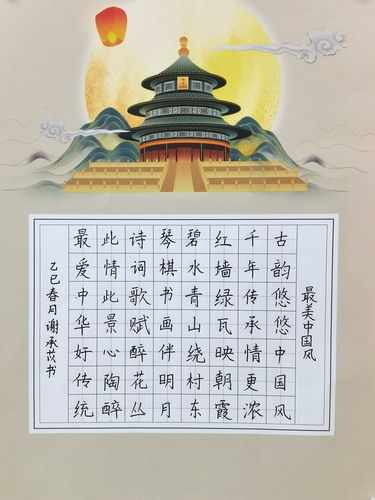 最美中国风
古韵悠悠中国风
千年传承情更浓
红墙绿瓦映朝霞
碧水青山绕村东
琴棋书画伴明月
诗词歌赋醉花丛
此情此景心陶醉
最爱中华好传统
乙巳春月谢承书